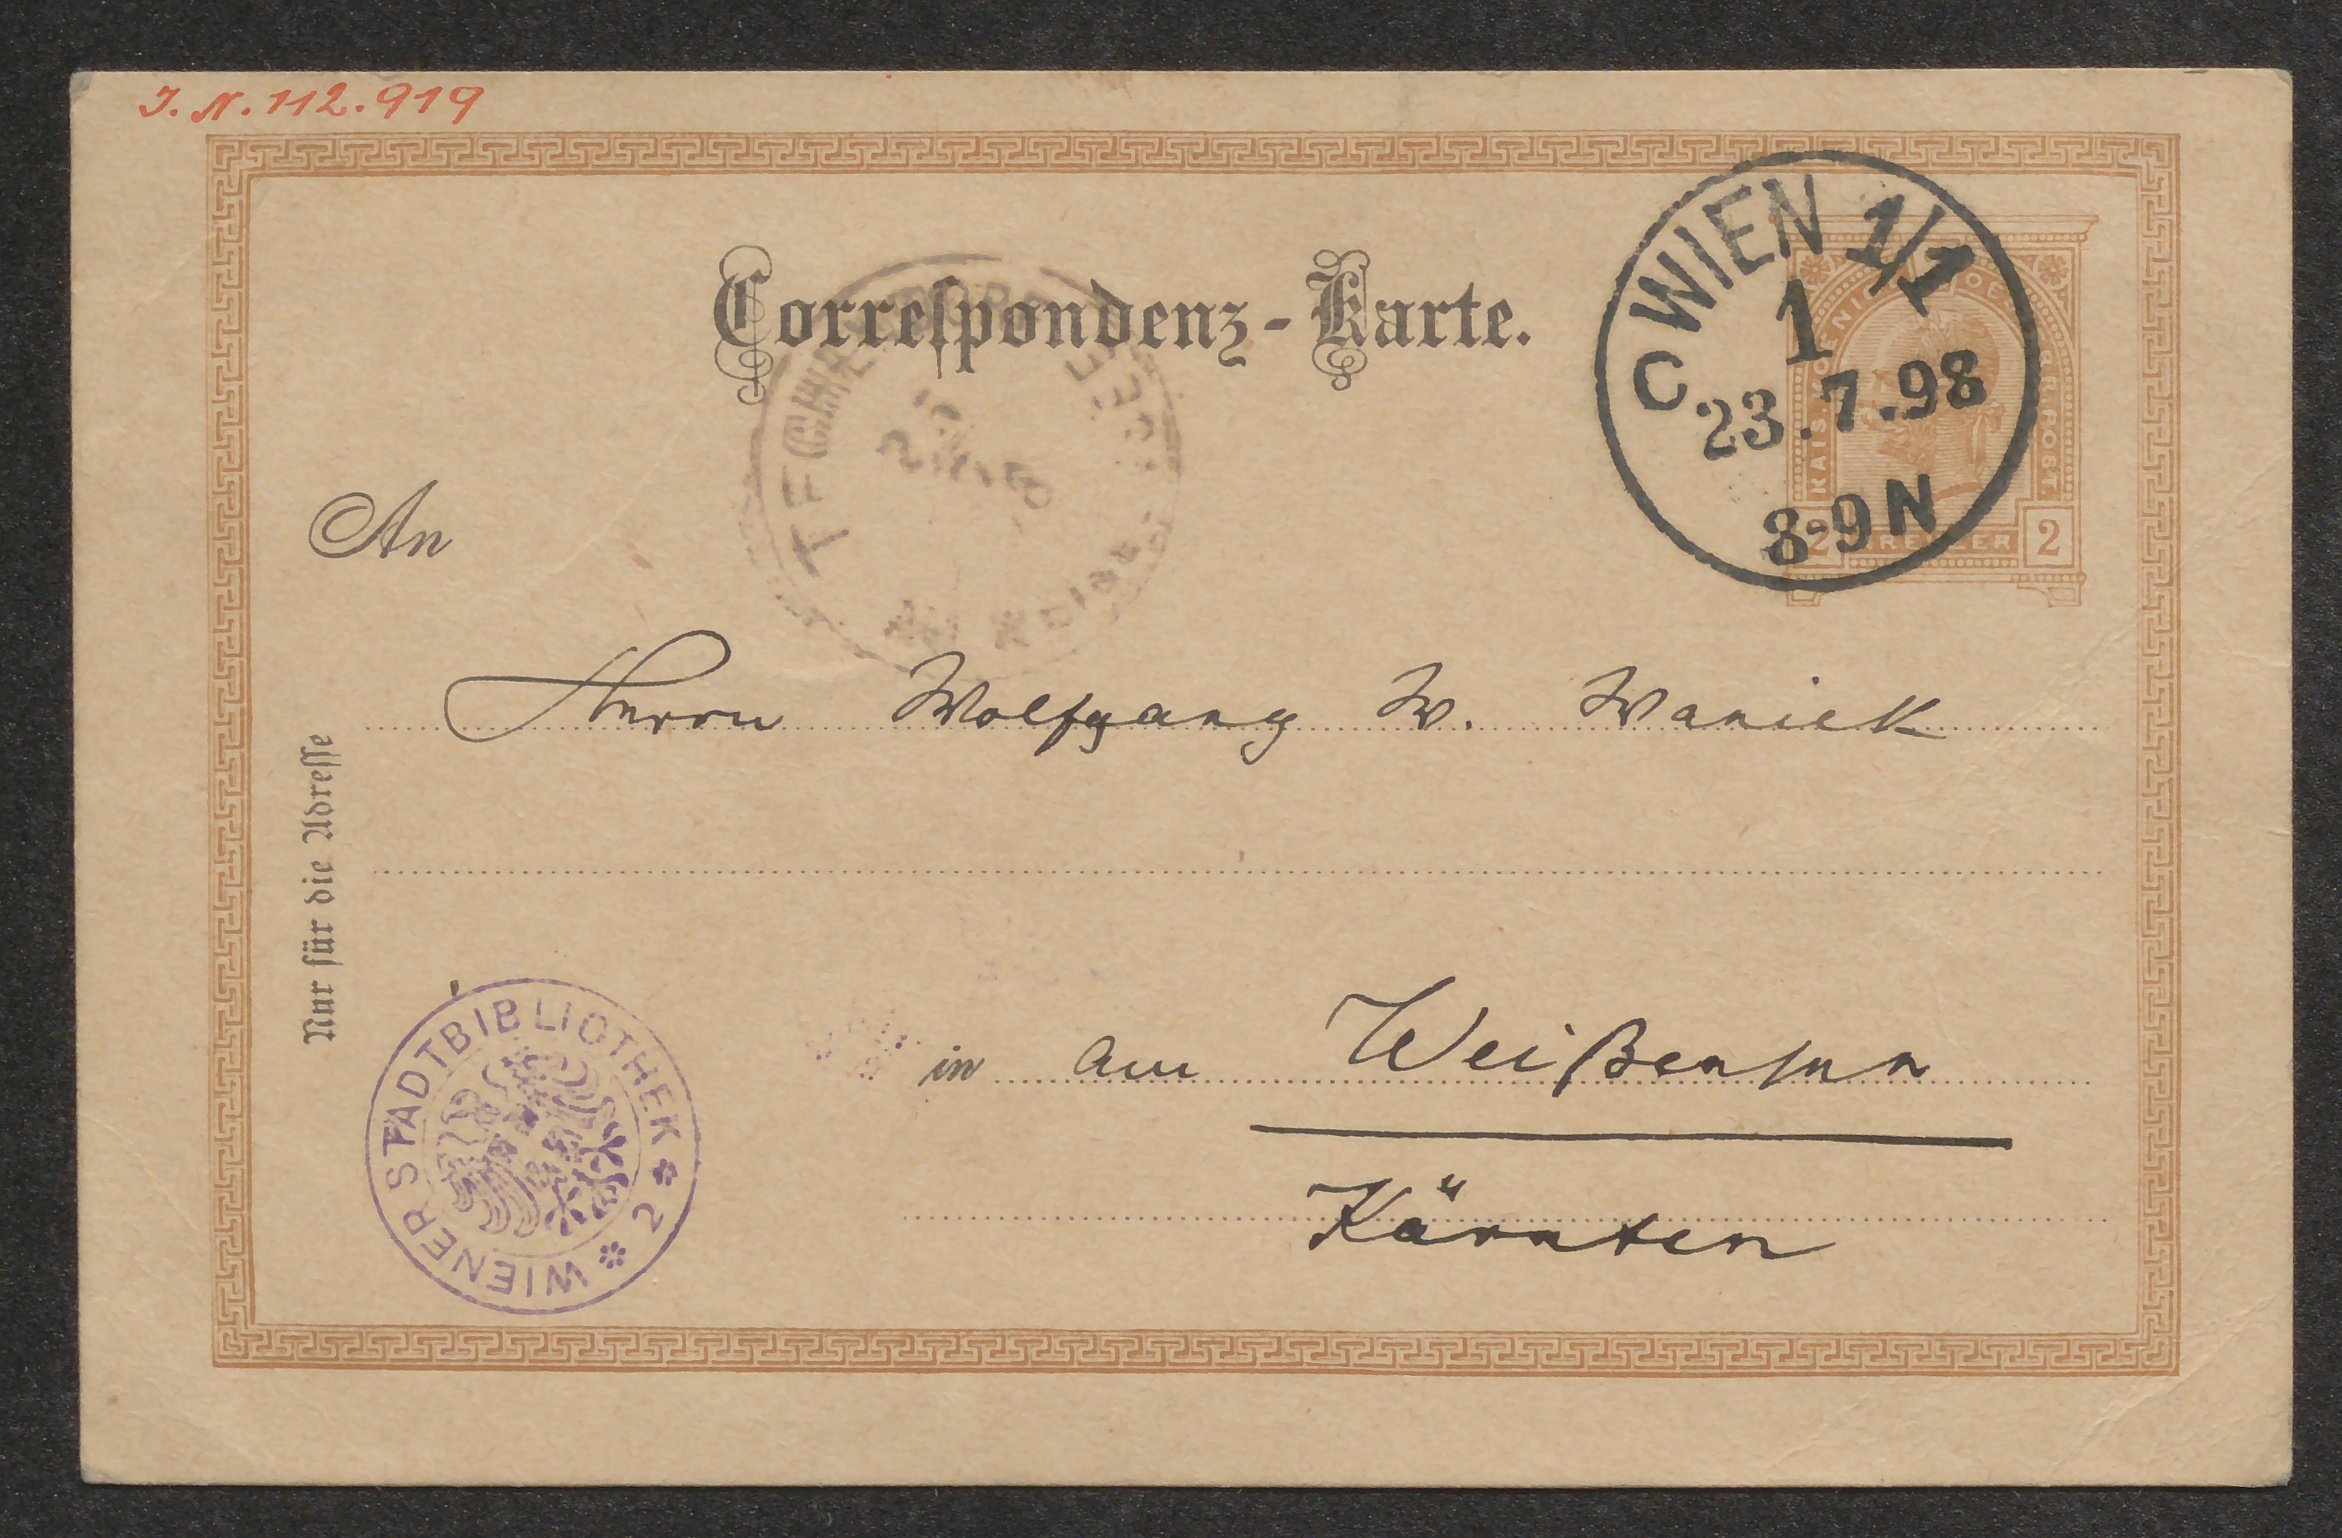 J. N. 112.919
Correſpondenz-Karte.
WIEN 1/1
1
C 23.7.98
8-9 N
2 KREUZER 2
An
Herrn Wolfgang W. Waniek
Nur für die Adreſſe
in am Weißensee
Kärnten
WIENER STADTBIBLIOTHEK * 2 *